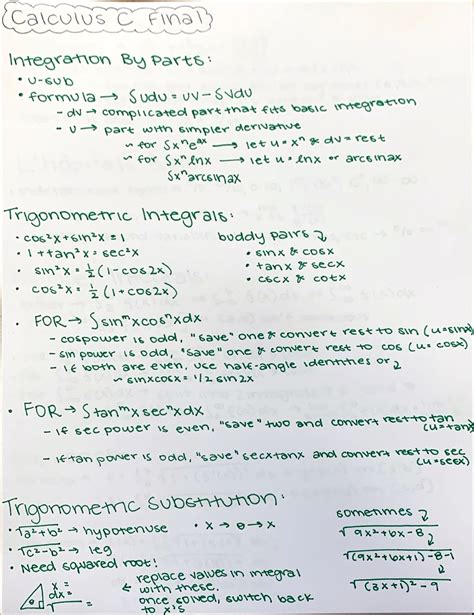 Calculus C Final
Integration By Parts:
• u-sub
• formula → ∫udu = uv - ∫vdu
- dv → complicated part that fits basic integration
- u → part with simpler derivative
~ for ∫xⁿeᵃˣ → let u = xⁿ & dv = rest
~ for ∫xⁿlnx → let u = lnx or arcsinax
∫xⁿarcsinax
Trigonometric Integrals:
• cos²x + sin²x = 1
• 1 + tan²x = sec²x
• sin²x = ½(1 - cos2x)
• cos²x = ½(1 + cos2x)
buddy pairs
• sinx & cosx
• tanx & secx
• cscx & cotx
• FOR → ∫sinᵐxcosⁿxdx
- cos power is odd, "save" one & convert rest to sin (u = sinx)
- sin power is odd, "save" one & convert rest to cos (u = cosx)
- if both are even, use half-angle identities or
~ sinxcosx = 1/2 sin2x
• FOR → ∫tanᵐxsecⁿxdx
- if sec power is even, "save" two and convert rest to tan (u = tanx)
- if tan power is odd, "save" secxtanx and convert rest to sec (u = secx)
Trigonometric Substitution:
• √a²+b² → hypotenuse
• √c²-b² → leg
• Need squared root!
• x → θ → x
θ
x =
dx =
√ =
replace values in integral
with these.
once solved, switch back
to x's
sometimes
√9x²+6x-8
√(9x²+6x+1)-8-1
√(3x+1)²-9